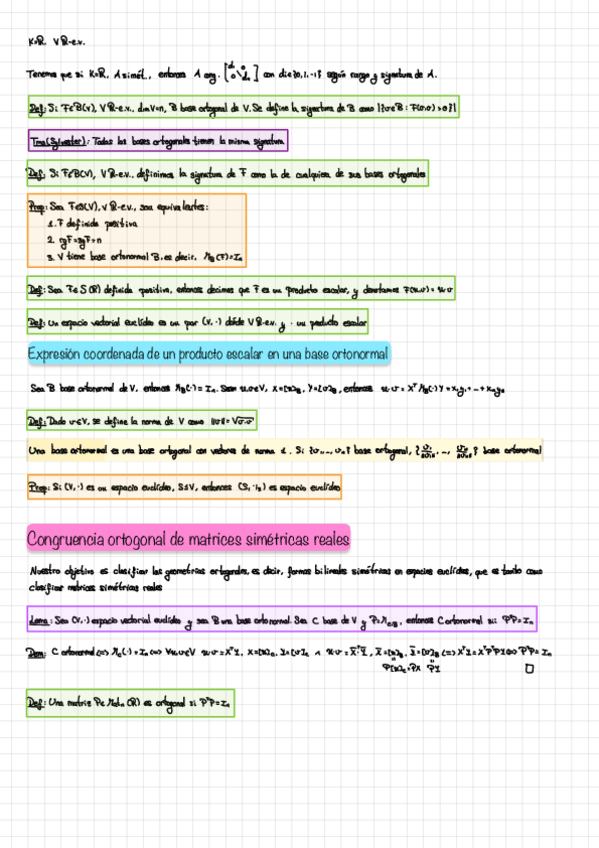 K=R V R-e.v.
Tenemos que si K=R, A simét., entonces A cong. [d₁ 0 ⋱ 0 dₙ] con dᵢ∈{0,1,-1} según rango y signatura de A.
Def: Si F∈B(V), V R-e.v., dimV=n, B base ortogonal de V. Se define la signatura de B como |{v∈B: F(v,v)>0}|
Tma(Sylvester): Todas las bases ortogonales tienen la misma signatura
Def: Si F∈B(V), V R-e.v., definimos la signatura de F como la de cualquiera de sus bases ortogonales
Prop: Sea F∈S(V), V R-e.v., son equivalentes:
1. F definida positiva
2. rgF=sgF=n
3. V tiene base ortonormal B, es decir, M_B(F)=Iₙ
Def: Sea F∈S(R) definida positiva, entonces decimos que F es un producto escalar, y denotamos F(u,v)=u·v
Def: Un espacio vectorial euclídeo es un par (V,·) dónde V R-e.v. y · un producto escalar
Expresión coordenada de un producto escalar en una base ortonormal
Sea B base ortonormal de V, entonces M_B(·)=Iₙ. Sean u,v∈V, X=[u]_B, Y=[v]_B, entonces u·v=XᵀM_B(·)Y=x₁y₁+...+xₙyₙ
Def: Dado v∈V, se define la norma de V como ||v||=√v·v
Una base ortonormal es una base ortogonal con vectores de norma 1. Si {v₁,...,vₙ} base ortogonal, {v₁/||v₁||,...,vₙ/||vₙ||} base ortonormal
Prop: Si (V,·) es un espacio euclídeo, S≤V, entonces (S,·|s) es espacio euclídeo
Congruencia ortogonal de matrices simétricas reales
Nuestro objetivo es clasificar las geometrías ortogonales, es decir, formas bilineales simétricas en espacios euclídeos, que es tanto como
clasificar matrices simétricas reales
Lema: Sea (V,·) espacio vectorial euclídeo y sea B una base ortonormal. Sea C base de V y P=M_{C,B}, entonces C ortonormal sii PᵀP=Iₙ
Dem: C ortonormal ⟺ M_C(·)=Iₙ ⟺ ∀u,v∈V u·v=XᵀY, X=[u]_C, Y=[v]_C ∧ u·v=X̄ᵀȲ, X̄=[u]_B, Ȳ=[v]_B ⟺ XᵀY=XᵀPᵀPY ⟺ PᵀP=Iₙ
P[u]_C=PX PY □
Def: Una matriz P∈Matₙ(R) es ortogonal si PᵀP=Iₙ